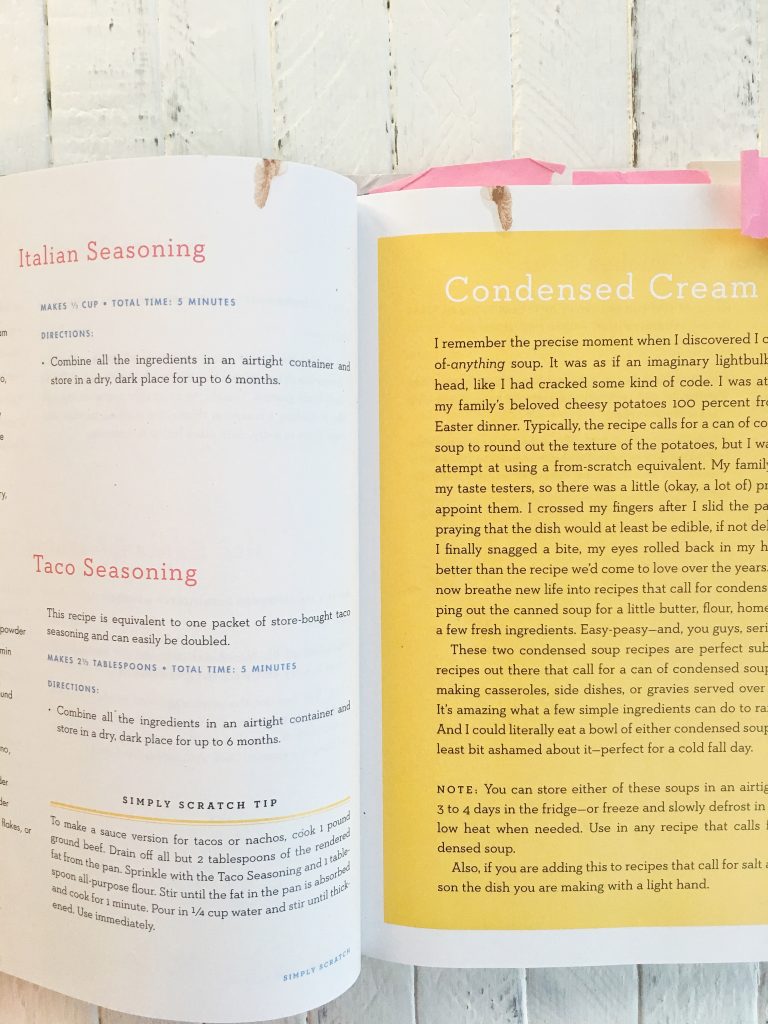 Italian Seasoning
MAKES ⅓ CUP • TOTAL TIME: 5 MINUTES
DIRECTIONS:
• Combine all the ingredients in an airtight container and
store in a dry, dark place for up to 6 months.
powder
flakes, or
Taco Seasoning
This recipe is equivalent to one packet of store-bought taco
seasoning and can easily be doubled.
MAKES 2½ TABLESPOONS • TOTAL TIME: 5 MINUTES
DIRECTIONS:
• Combine all the ingredients in an airtight container and
store in a dry, dark place for up to 6 months.
SIMPLY SCRATCH TIP
To make a sauce version for tacos or nachos, cook 1 pound
ground beef. Drain off all but 2 tablespoons of the rendered
fat from the pan. Sprinkle with the Taco Seasoning and 1 table-
spoon all-purpose flour. Stir until the fat in the pan is absorbed
and cook for 1 minute. Pour in ¼ cup water and stir until thick-
ened. Use immediately.
SIMPLY SCRATCH
Condensed Cream
I remember the precise moment when I discovered I c
of-anything soup. It was as if an imaginary lightbulb
head, like I had cracked some kind of code. I was at
my family's beloved cheesy potatoes 100 percent fro
Easter dinner. Typically, the recipe calls for a can of co
soup to round out the texture of the potatoes, but I wa
attempt at using a from-scratch equivalent. My family
my taste testers, so there was a little (okay, a lot of) pr
appoint them. I crossed my fingers after I slid the pa
praying that the dish would at least be edible, if not del
I finally snagged a bite, my eyes rolled back in my h
better than the recipe we'd come to love over the years.
now breathe new life into recipes that call for condens
ping out the canned soup for a little butter, flour, home
a few fresh ingredients. Easy-peasy—and, you guys, seri
These two condensed soup recipes are perfect sub
recipes out there that call for a can of condensed soup
making casseroles, side dishes, or gravies served over
It's amazing what a few simple ingredients can do to ra
And I could literally eat a bowl of either condensed soup
least bit ashamed about it—perfect for a cold fall day.
NOTE: You can store either of these soups in an airtig
3 to 4 days in the fridge—or freeze and slowly defrost in
low heat when needed. Use in any recipe that calls f
densed soup.
Also, if you are adding this to recipes that call for salt a
son the dish you are making with a light hand.